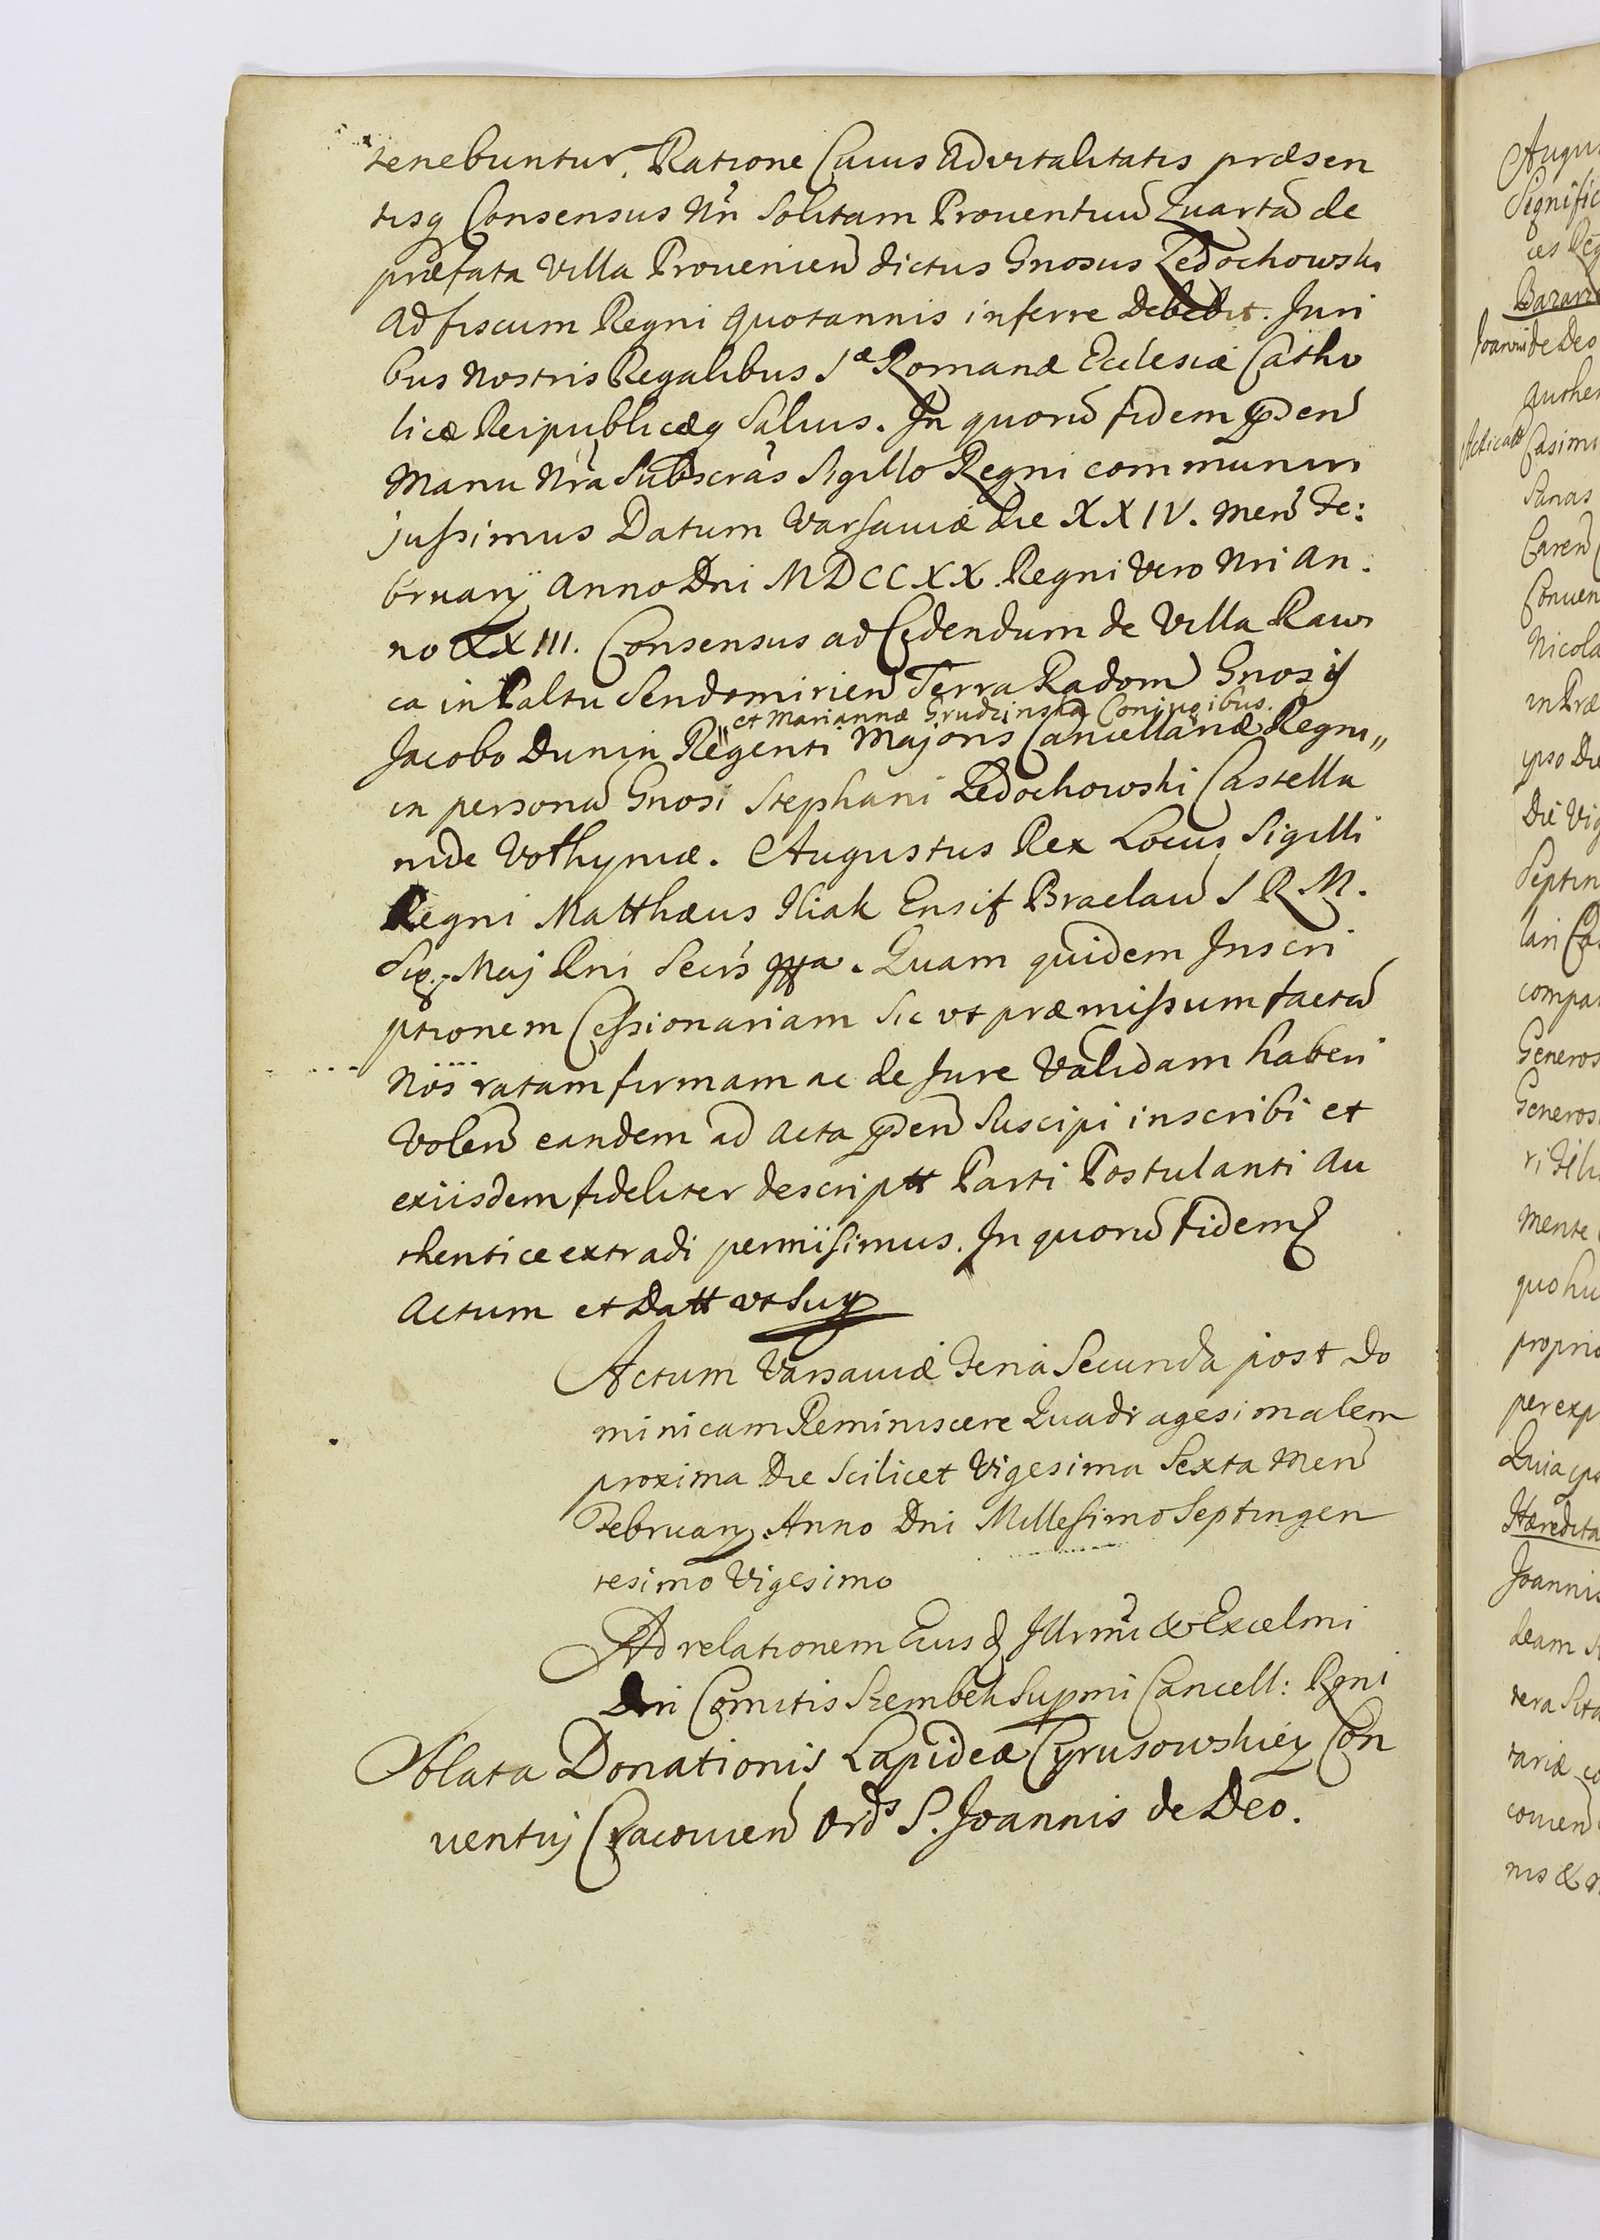 tenebuntur. Ratione Cuius advitalitatis præsen
tisq Consensus Nri Solitam Prouentuū Quartā de
præfata Villa Prouenien dictus Gnosus Ledochowski
ad fiscum Regni quotannis inferre debebit. Juri
bus nostris Regalibus Sæ Romanæ Ecclesiæ Catho
licæ Reipublicæq Saluis. In quorū fidem pñden
Manu Nrâ Subscras Sigillo Regni communiri
jussimus Datum Varsauiæ die XXIV. Men Fe:
bruarÿ Anno Dni MDCCXX. Regni Vero Nri An.
no XXIII. Consensus ad Cedendum de Villa Raw
ca in Paltu Sendomirien Terra Radom Gnosis
et Mariannæ Grudzinska Coniugibus.
Jacobo Dunin Regenti Majoris Cancellariæ Regni
in personā Gnosi Stephani Ledochowski Castella
nide Vothyniæ. Augustus Rex Locus Sigilli
Regni Matthæus Iliak Ensif Braclau S R M.
Sig. Maj Rni Secrs mppa. Quam quidem Inscri
ptionem Cessionariam Sic vt præmissum factā
Nos ratam firmam ac de Jure Validam haberi
Volen eandem ad acta pñden Suscipi inscribi et
exiisdem fideliter descriptt Parti Postulanti Au
thentice extradi permisimus. In quorū Fidem
Actum et Datt vt Sup
Actum Varsauiæ Feria Secunda post Do
minicam Reminiscere Quadragesimalem
proxima Die Scilicet Vigesima Sexta Men
Februarÿ Anno Dni Millesimo Septingen
tesimo Vigesimo
Ad relationem Eiusd Illrmi & Excelmi
Dni Comitis Szembek Supmi Cancell: Rgni
Oblata Donationis Lapideæ Cyrusowskiey Con
uentuj Cracouien Ords S. Joannis de Deo.